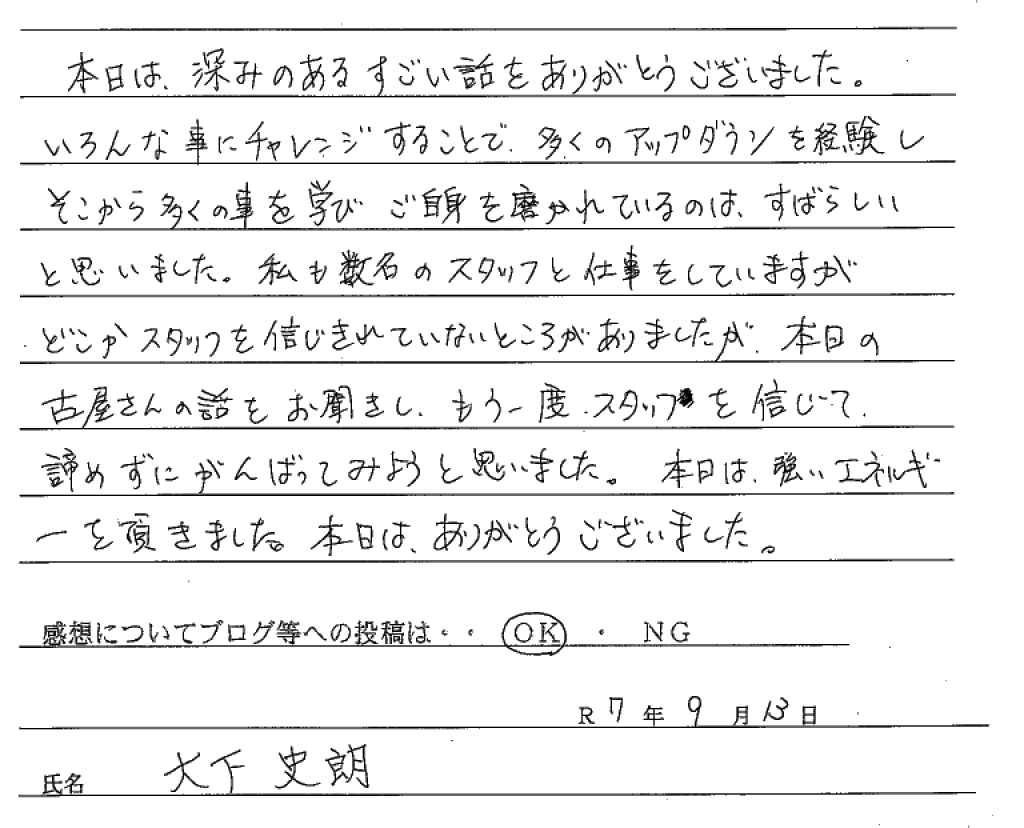 本日は、深みのあるすごい話をありがとうございました。
いろんな事にチャレンジすることで、多くのアップダウンを経験し
そこから多くの事を学び ご自身を磨かれているのは、すばらしい
と思いました。私も数名のスタッフと仕事をしていますが
どこかスタッフを信じきれていないところがありましたが、本日の
古屋さんの話をお聞きし、もう一度、スタッフを信じて、
諦めずにがんばってみようと思いました。本日は、強いエネルギ
ーを頂きました。本日は、ありがとうございました。
感想についてブログ等への投稿は・・ OK ・ NG
R 7 年 9 月 13 日
氏名 大下 史朗